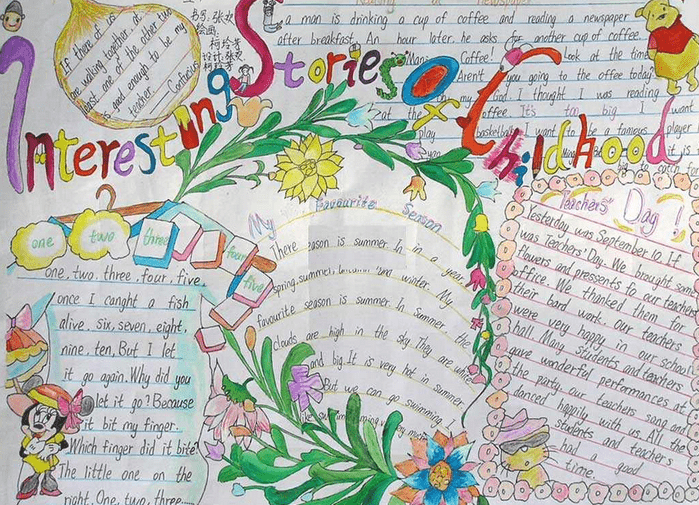 Interesting Stories of Childhood
If there of
are walking together, at
least one of the other two
is good enough to be my
teacher. — Confucius
书写:张
绘画:
柯玲芳
设计:张
柯玲芳
Reading a newspaper
a man is drinking a cup of coffee and reading a newspaper
after breakfast. An hour later, he asks for another cup of coffee.
Coffee! Look at the time
Aren't you going to the office today
my God. I thought I was reading
at the office It's too big I want
play basketball I want to be a famous player
you
one
two
three
four
five
one, two, three, four, five,
once I canght a fish
alive, six, seven, eight,
nine, ten, But I let
it go again. Why did you
let it go? Because
it bit my finger.
Which finger did it bite
The little one on the
right. One, two, three......
My Favourite Season
There season is summer. In in a year,
spring, summer, and winter. My
favourite season is summer. In summer, the
clouds are high in the sky. They are white
and big. It is very hot in summer.
But we can go swimming. I
like
Teachers' Day!
Yesterday was September 10. It
was Teachers' Day. We brought some
flowers and pressents fo our teachers
office. We thanked them for
their bard work. Our teachers
were very happy in our school
hall. Many students and teachers
gave wonderful performances at
the party. Our teachers sang and
danced happily with us. All the
students and teachers
had a good
time.